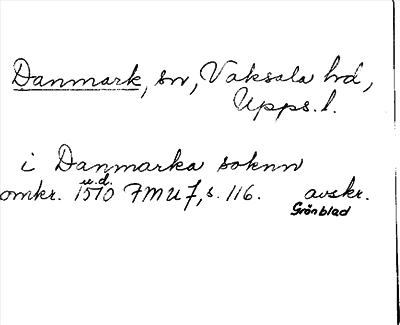 Danmark, sn, Vaksala hd,
Upps. l.
i Danmarka soknn
u.d.
omkr. 1570 FMU 7, s. 116. avskr.
Grönblad